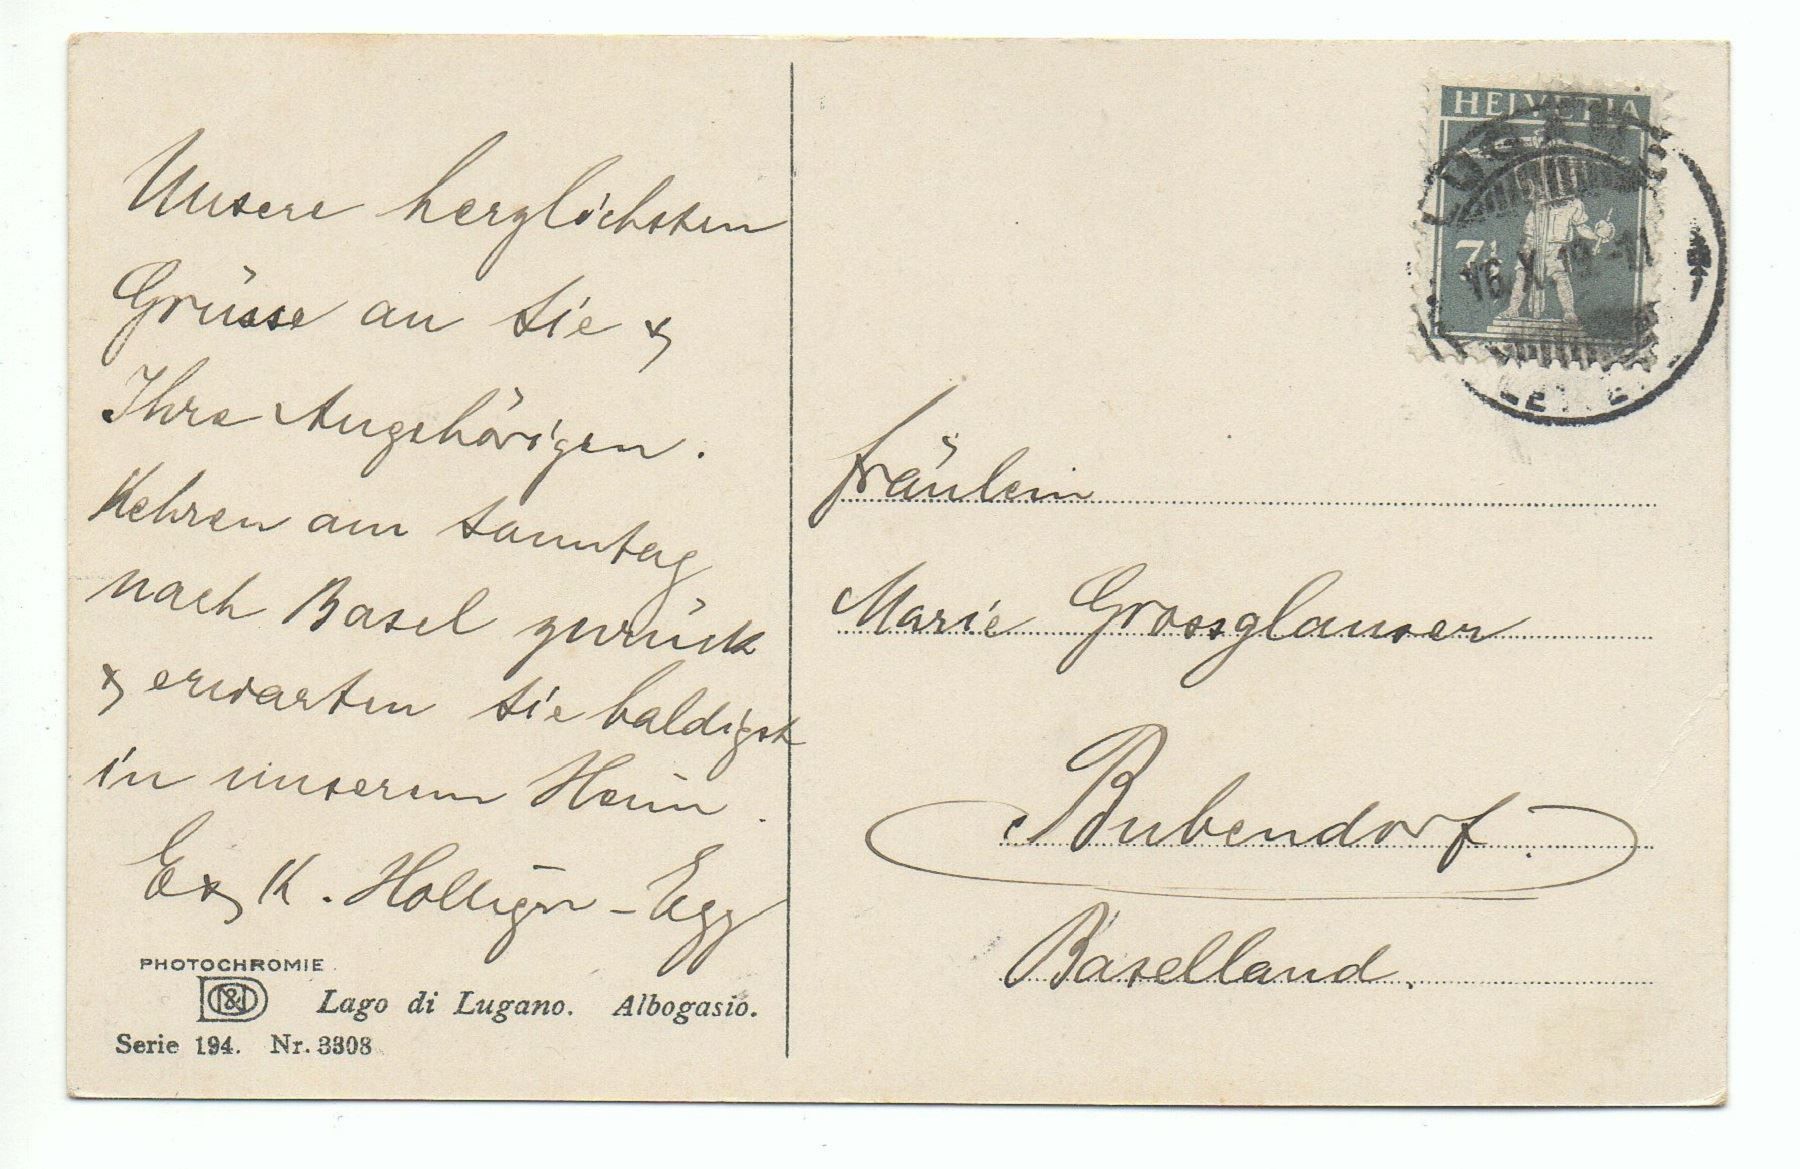 Unsere herzlichsten
Grüsse an Sie &
Ihre Angehörigen.
Kehren am Sonntag
nach Basel zurück
& erwarten Sie baldigst
in unserem Heim.
E & K. Holliger-Egg
PHOTOCHROMIE
Lago di Lugano. Albogasio.
Serie 194. Nr. 3308
HELVETIA
7½
LUGANO
16. X. 19 -11
Fräulein
Marie Grossglauser
Bubendorf.
Baselland.